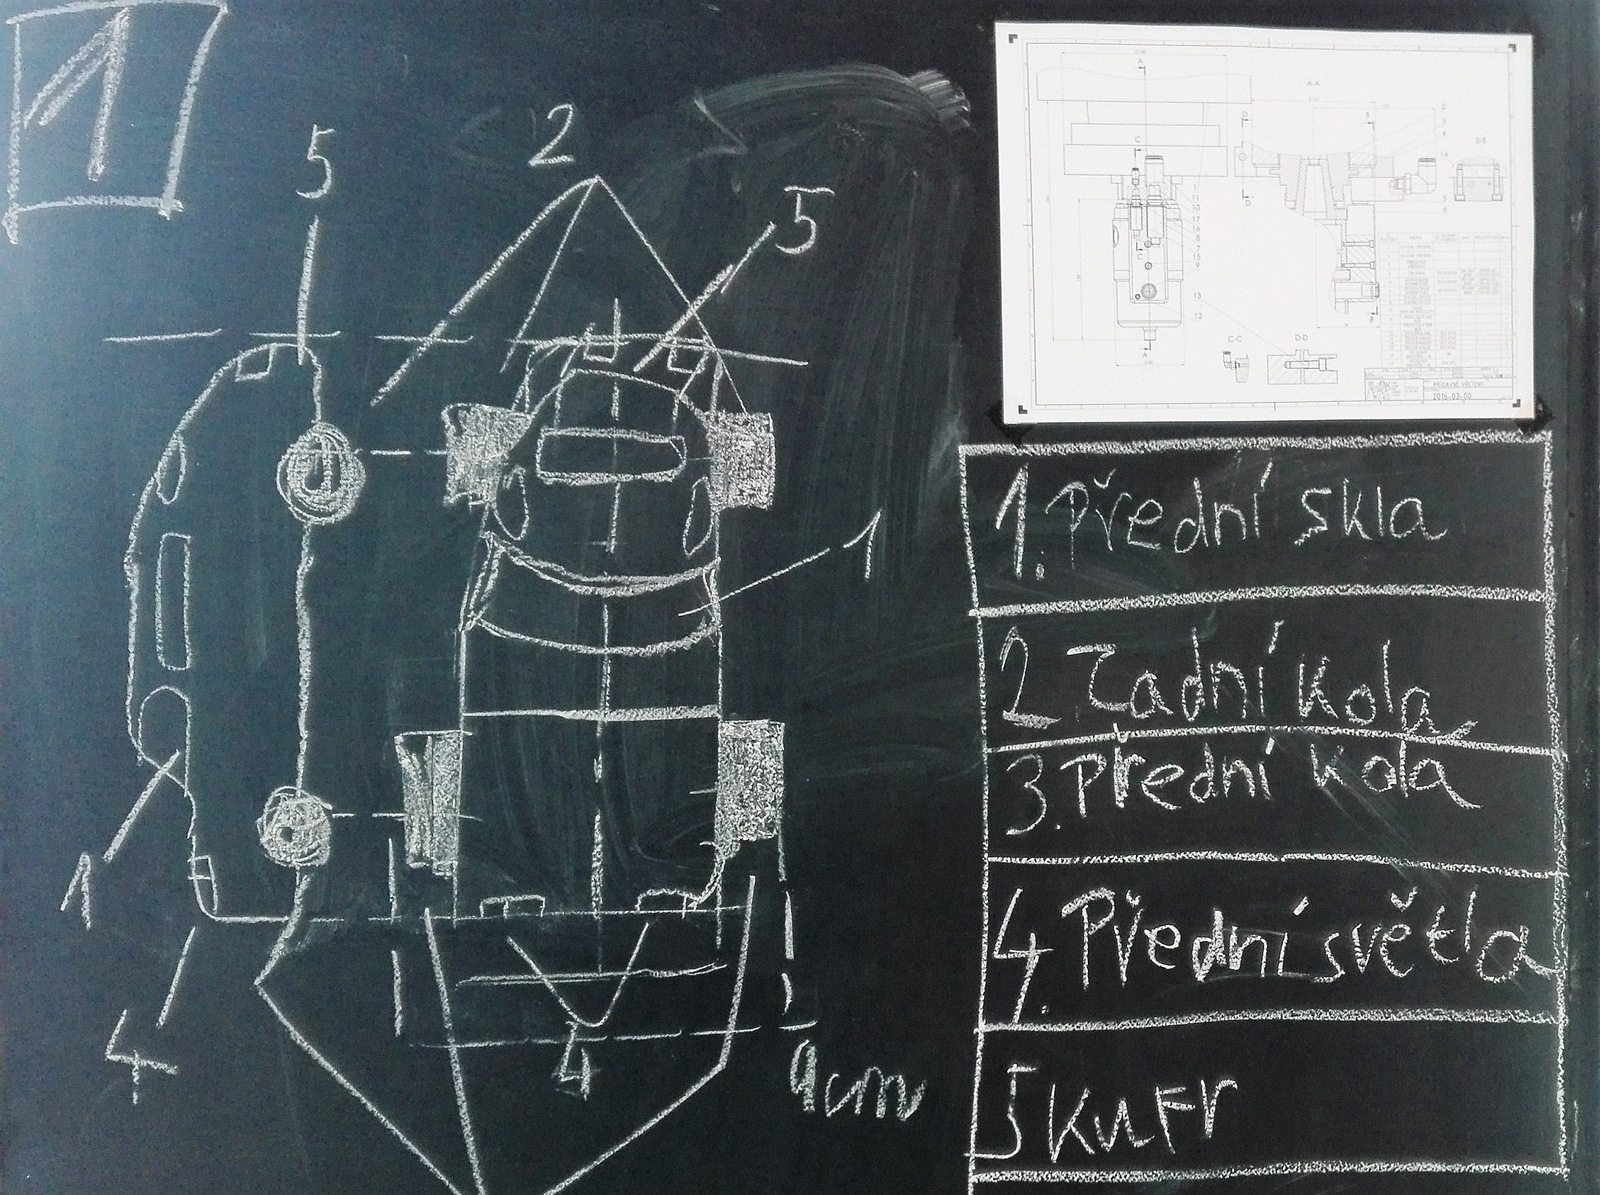 1
5
2
5
1
1
4
4
9cm
A-A
B-B
C-C
D-D
PŘÍDAVNÉ VŘETENO
2016-03-00
1. Přední skla
2 Zadní kola
3. Přední kola
4. Přední světla
5 KUFr